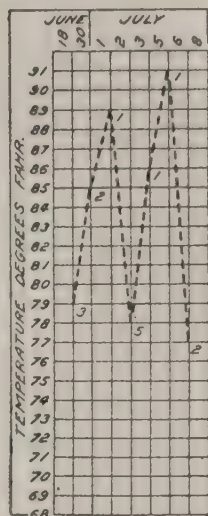 JUNE JULY
18 30 1 2 3 4 5 6 7 8
TEMPERATURE DEGREES FAHR.
91
90
89
88
87
86
85
84
83
82
81
80
79
78
77
76
75
74
73
72
71
70
69
68
1
1
1
2
3
5
2